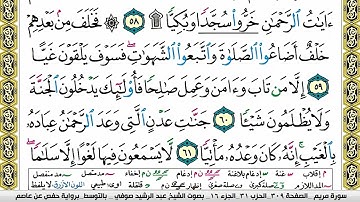 ءَايَٰتُ ٱلرَّحْمَٰنِ خَرُّوا۟ سُجَّدًا وَبُكِيًّا ۩ ٥٨ فَخَلَفَ مِنۢ بَعْدِهِمْ
خَلْفٌ أَضَاعُوا۟ ٱلصَّلَوٰةَ وَٱتَّبَعُوا۟ ٱلشَّهَوَٰتِ ۖ فَسَوْفَ يَلْقَوْنَ غَيًّا
٥٩ إِلَّا مَن تَابَ وَءَامَنَ وَعَمِلَ صَٰلِحًا فَأُو۟لَٰٓئِكَ يَدْخُلُونَ ٱلْجَنَّةَ
وَلَا يُظْلَمُونَ شَيْـًٔا ٦٠ جَنَّٰتِ عَدْنٍ ٱلَّتِى وَعَدَ ٱلرَّحْمَٰنُ عِبَادَهُۥ
بِٱلْغَيْبِ ۚ إِنَّهُۥ كَانَ وَعْدُهُۥ مَأْتِيًّا ٦١ لَّا يَسْمَعُونَ فِيهَا لَغْوًا إِلَّا سَلَٰمًا ۖ
سورة مريم الصفحة ٣٠٩ الحزب ٣١ الجزء ١٦ بصوت الشيخ عبد الرشيد صوفي بالتوسط برواية حفص عن عاصم